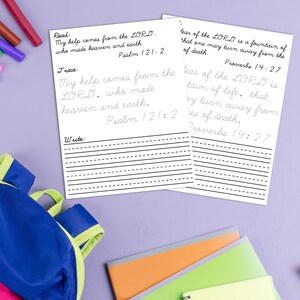 Read:
My help comes from the LORD, who made heaven and earth.
Psalm 121:2
Trace:
My help comes from the
LORD, who made
heaven and earth.
Psalm 121:2
Write:
fear of the LORD is a fountain of
that one may turn away from the
of death.
Proverbs 14:27
fear of the LORD is
fountain of life, that
may turn away from
of death.
Proverbs 14:27